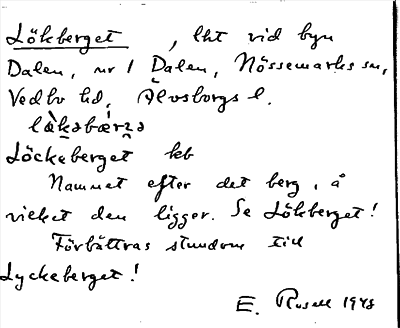 Lökberget, lht vid byn
Dalen, nr 1 Dalen, Nössemarks sn,
Vedbo hd, Älvsborgs l.
Löckeberget kb
Namnet efter det berg, å
vilket den ligger. Se Lökberget!
Förbättras stundom till
Lyckeberget!
E. Rosell 1948